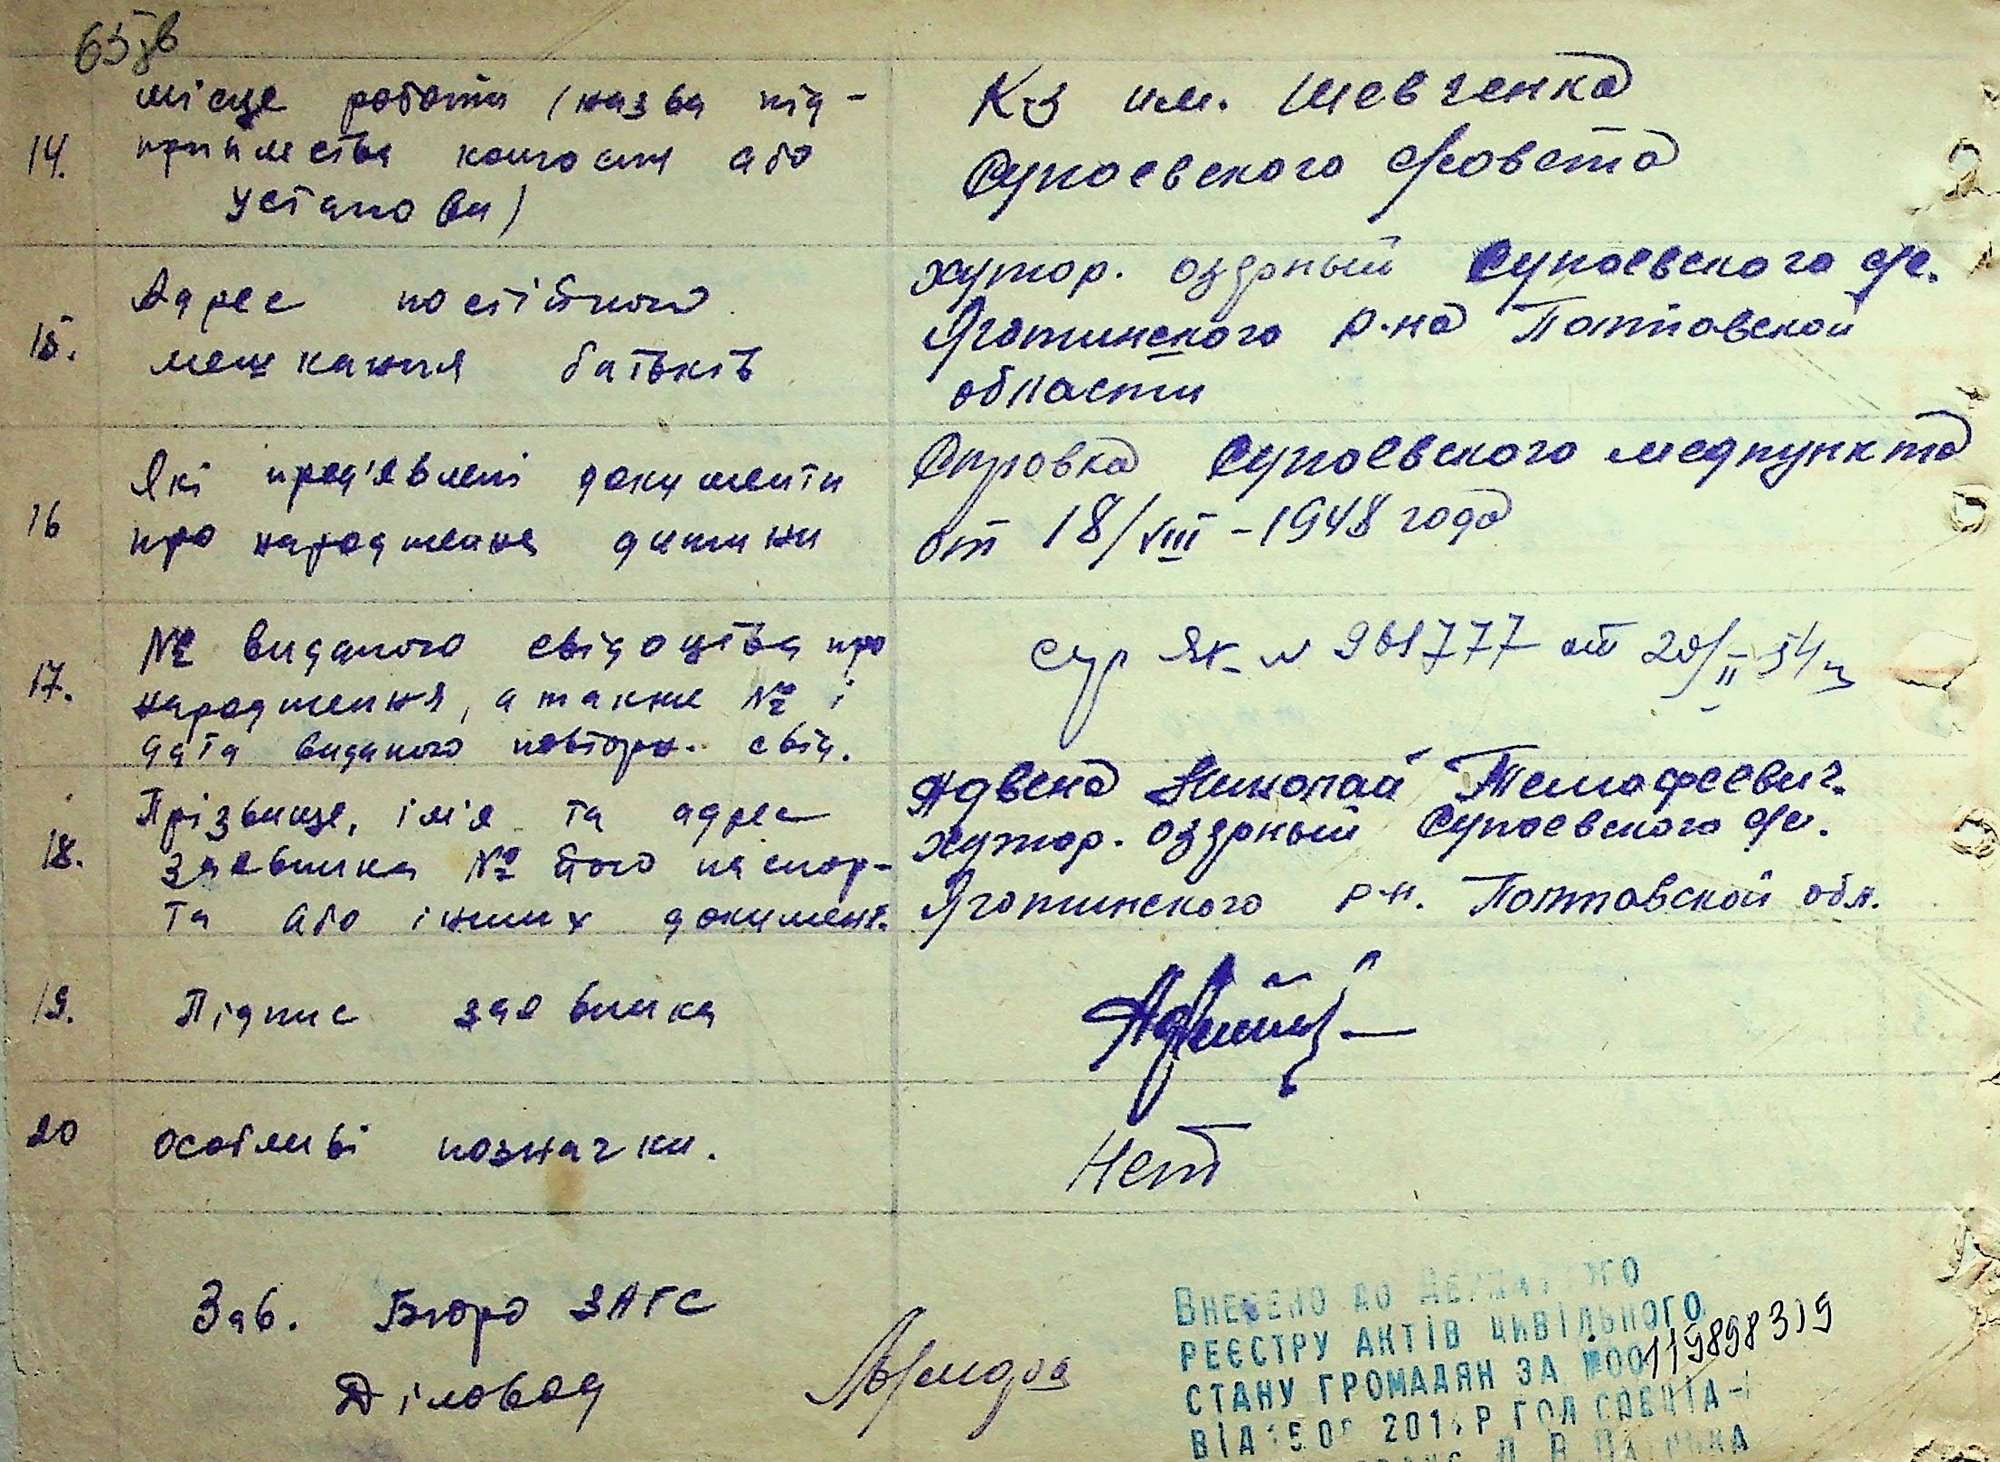 65 зв
14. місце роботи (назва під-
приємства колгоспу або
установи)
К-з им. Шевченка
Супоевского с/совета
15. Адрес постійного
мешкання батьків
хутор. Озерный Супоевского с/с.
Яготинского р-на Полтавской
области
16 Які пред'явлені документи
про народження дитини
Справка Супоевского медпункта
от 18/VIII - 1948 года
17. № виданого свідоцтва про
народження, а також № і
дата виданого повторн. свід.
ЯК № 961777 от 20/II 54
18. Прізвище, ім'я та адрес
заявника № його паспор-
та або інших документ.
Адвена Николай Темофеевич.
хутор. Озерный Супоевского с/с.
Яготинского р-н. Полтавской обл.
19. Підпис заявника
20 Особливі позначки.
Нет
Зав. Бюро ЗАГС
Діловод
Внесено до Державного
реєстру актів цивільного
стану громадян за №00119898319
від 15.0 201 р гол спеціа-